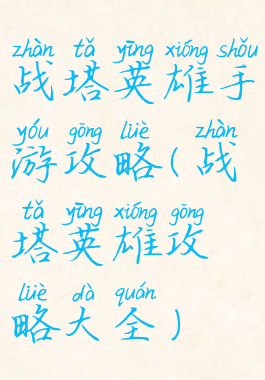 zhàn tǎ yīng xióng shǒu
战塔英雄手
yóu gōng lüè zhàn
游攻略(战
tǎ yīng xióng gōng
塔英雄攻
lüè dà quán
略大全)